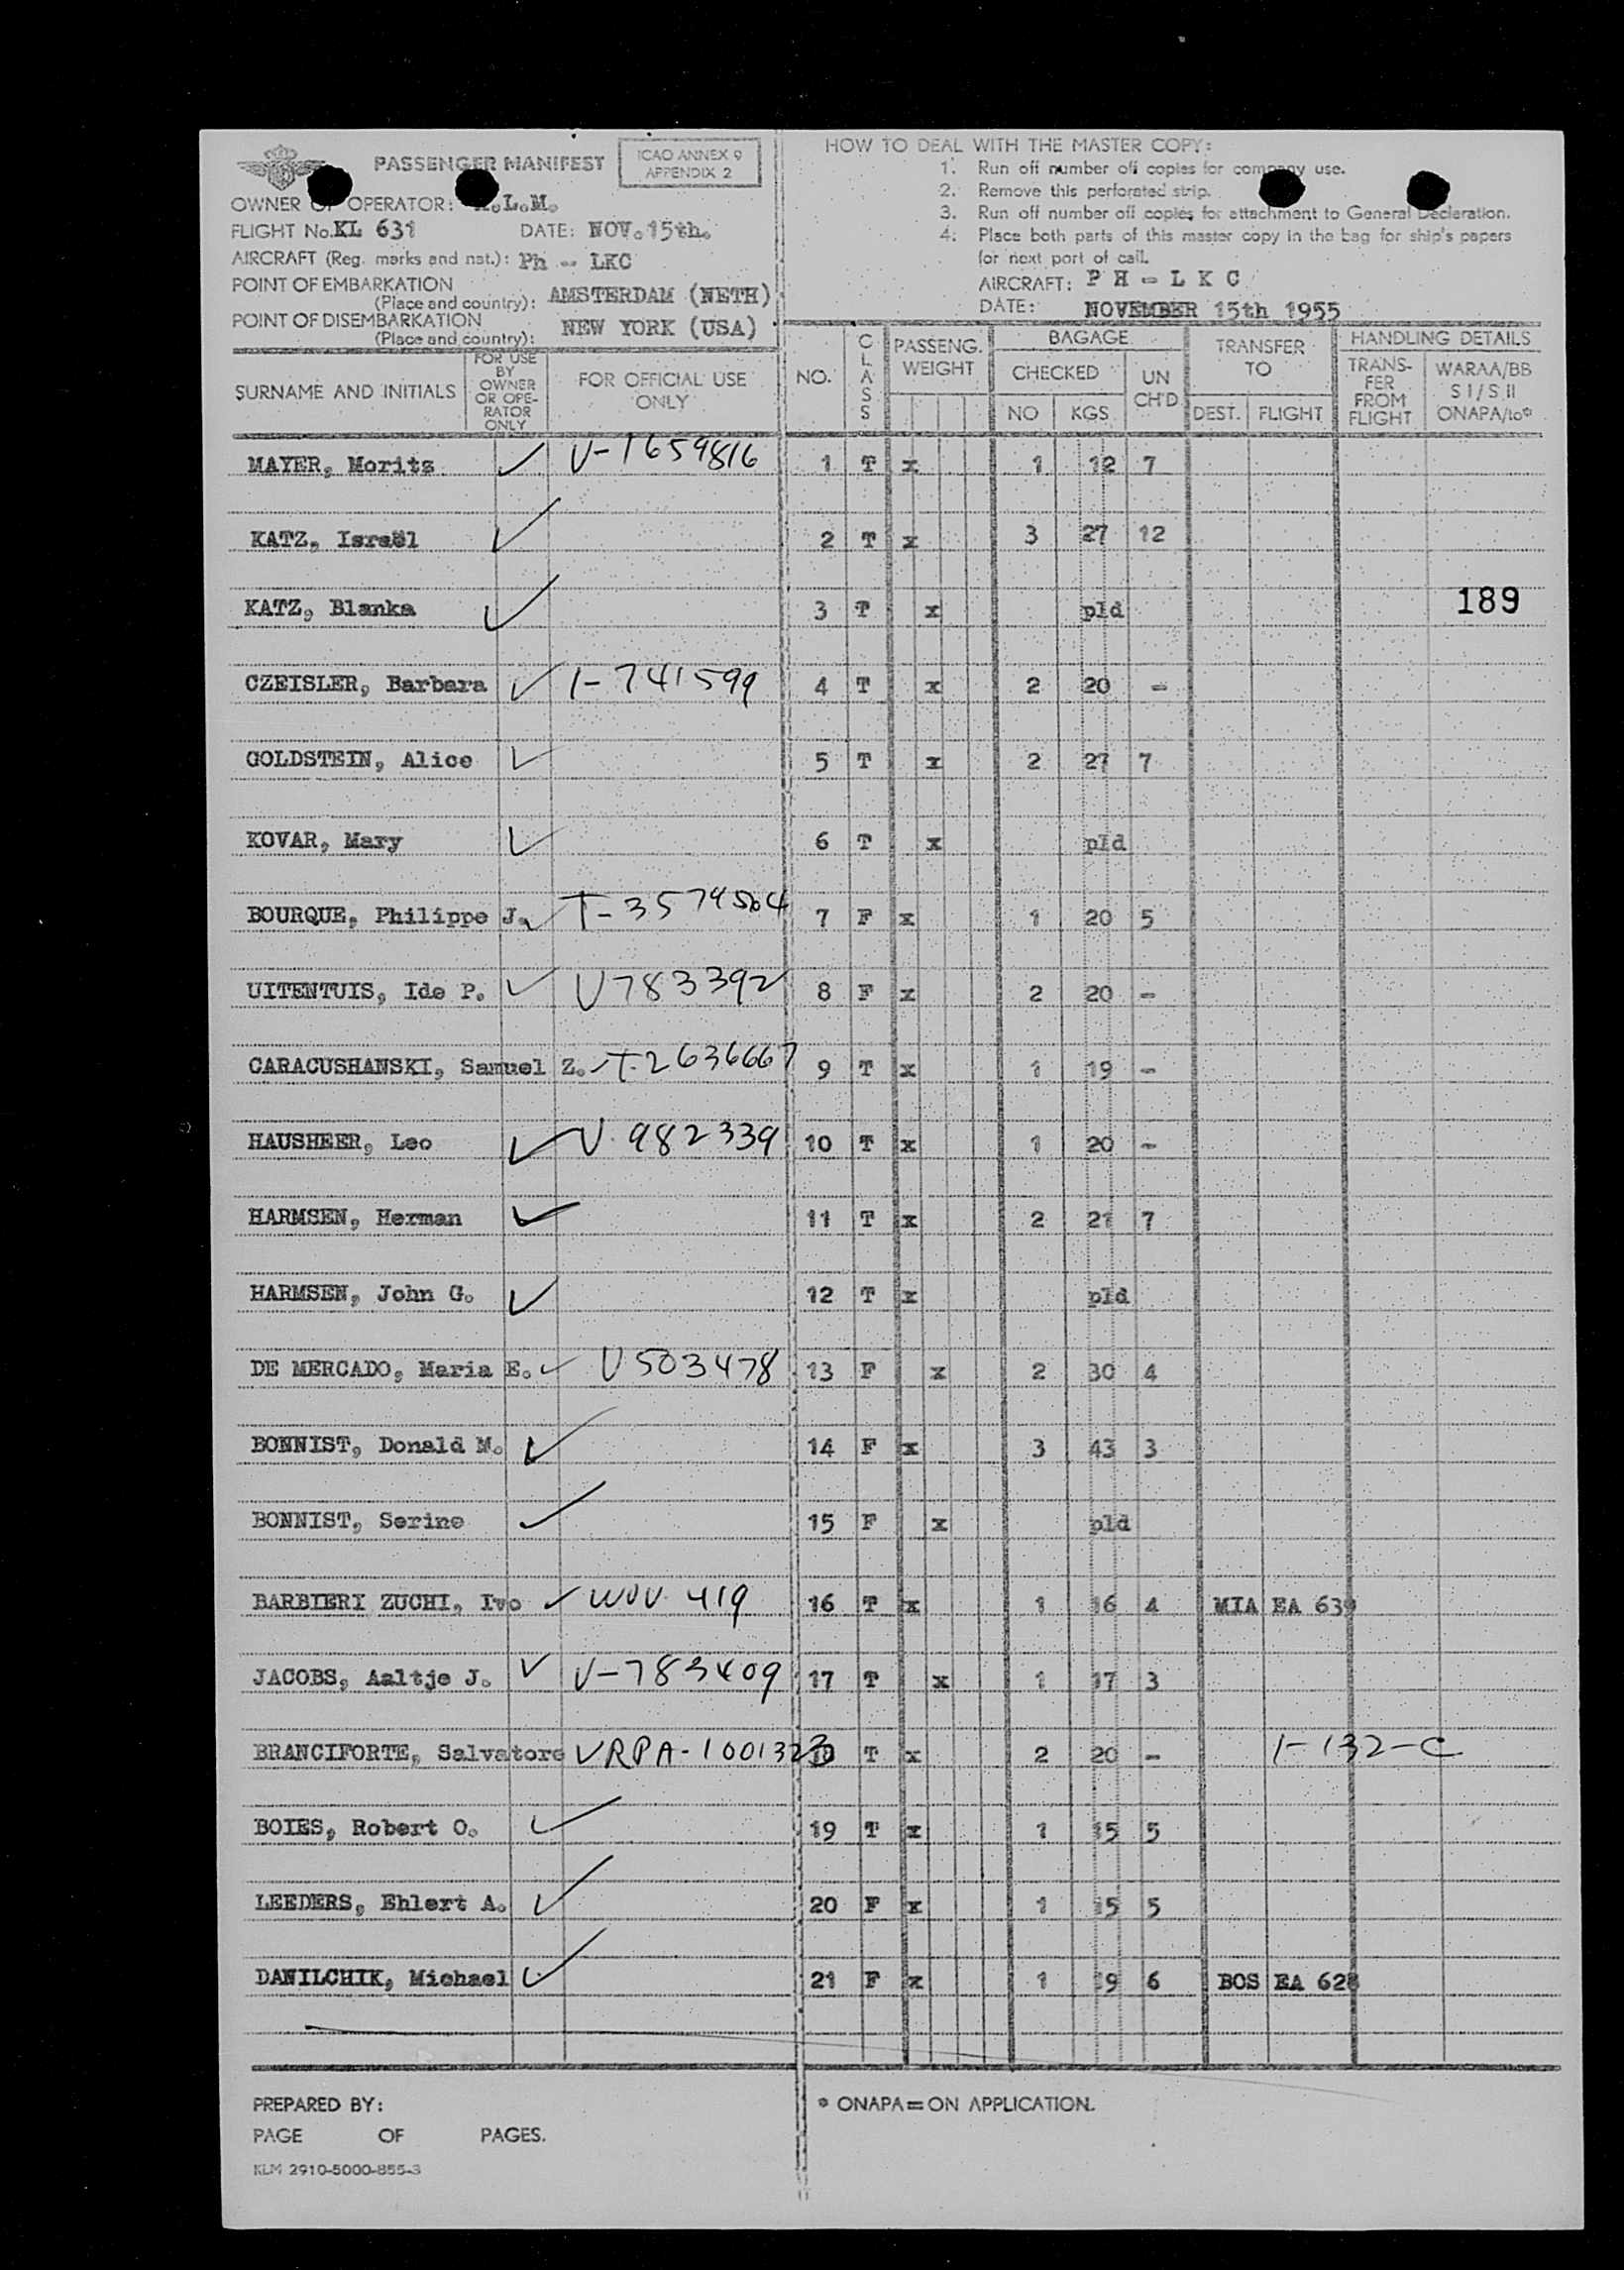 PASSENGER MANIFEST
ICAO ANNEX 9
APPENDIX 2
OWNER OR OPERATOR: K.L.M.
FLIGHT No. KL 631 DATE: NOV. 15th.
AIRCRAFT (Reg. marks and nat.): Ph -- LKC
POINT OF EMBARKATION
(Place and country): AMSTERDAM (NETH)
POINT OF DISEMBARKATION
(Place and country): NEW YORK (USA)
HOW TO DEAL WITH THE MASTER COPY:
1. Run off number off copies for company use.
2. Remove this perforated strip.
3. Run off number off copies for attachment to General Declaration.
4. Place both parts of this master copy in the bag for ship's papers
for next port of call.
AIRCRAFT: P H - L K C
DATE: NOVEMBER 15th 1955
SURNAME AND INITIALS
FOR USE BY OWNER OR OPE-RATOR ONLY
FOR OFFICIAL USE ONLY
NO.
CLASS
PASSENG. WEIGHT
BAGAGE
CHECKED
NO KGS
UN CH'D
TRANSFER TO
DEST. FLIGHT
HANDLING DETAILS
TRANS-FER FROM FLIGHT
WARAA/BB S I/S II ONAPA/to*
MAYER, Moritz ✓ V-1659816 1 T x 1 12 7
KATZ, Israël ✓ 2 T x 3 27 12
KATZ, Blanka ✓ 3 T x pld
189
CZEISLER, Barbara ✓ 1-741599 4 T x 2 20 -
GOLDSTEIN, Alice ✓ 5 T x 2 27 7
KOVAR, Mary ✓ 6 T x pld
BOURQUE, Philippe J. ✓ T-3579504 7 F x 1 20 5
UITENTUIS, Ide P. ✓ V783392 8 F x 2 20 -
CARACUSHANSKI, Samuel Z. ✓ T-2636667 9 T x 1 19 -
HAUSHEER, Leo ✓ V-982339 10 T x 1 20 -
HARMSEN, Herman ✓ 11 T x 2 21 7
HARMSEN, John G. ✓ 12 T x pld
DE MERCADO, Maria E. ✓ V503478 13 F x 2 30 4
BONNIST, Donald M. ✓ 14 F x 3 43 3
BONNIST, Serine ✓ 15 F x pld
BARBIERI ZUCHI, Ivo ✓ WOV 419 16 T x 1 16 4 MIA EA 639
JACOBS, Aaltje J. ✓ V-783409 17 T x 1 17 3
BRANCIFORTE, Salvatore VRPA-1001323 T x 2 20 - 1-132-C
BOIES, Robert O. ✓ 19 T x 1 15 5
LEEDERS, Ehlert A. ✓ 20 F x 1 15 5
DANILCHIK, Michael ✓ 21 F x 1 19 6 BOS EA 628
PREPARED BY:
PAGE OF PAGES.
* ONAPA=ON APPLICATION.
KLM 2910-5000-855-3